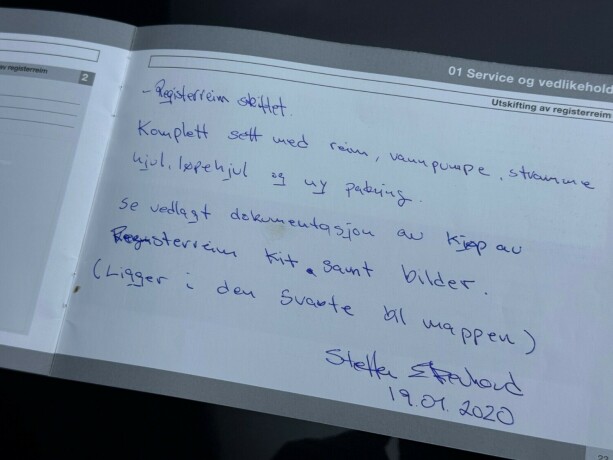 av registerreim
2
01 Service og vedlikehold
Utskifting av registerreim
- Registerreim skiftet.
Komplett sett med reim, vannpumpe, stramme
hjul, løpehjul og ny pakning.
Se vedlagt dokumentasjon av kjøp av
Registerreim kit samt bilder.
(Ligger i den svarte bil mappen)
Steffen
19.01.2020